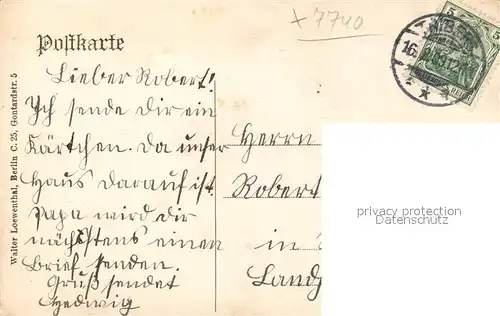 + 7740
Postkarte
Lieber Robert!
Ich sende dir ein
Kärtchen. Da unser
Haus darauf ist.
Papa wird dir
nächstens einen
Brief senden.
Gruß sendet
Hedwig
Walter Loewenthal, Berlin C. 25, Gontardstr. 5
Herrn
Robert
in
5
5
REICH
16.
privacy protection
Datenschutz